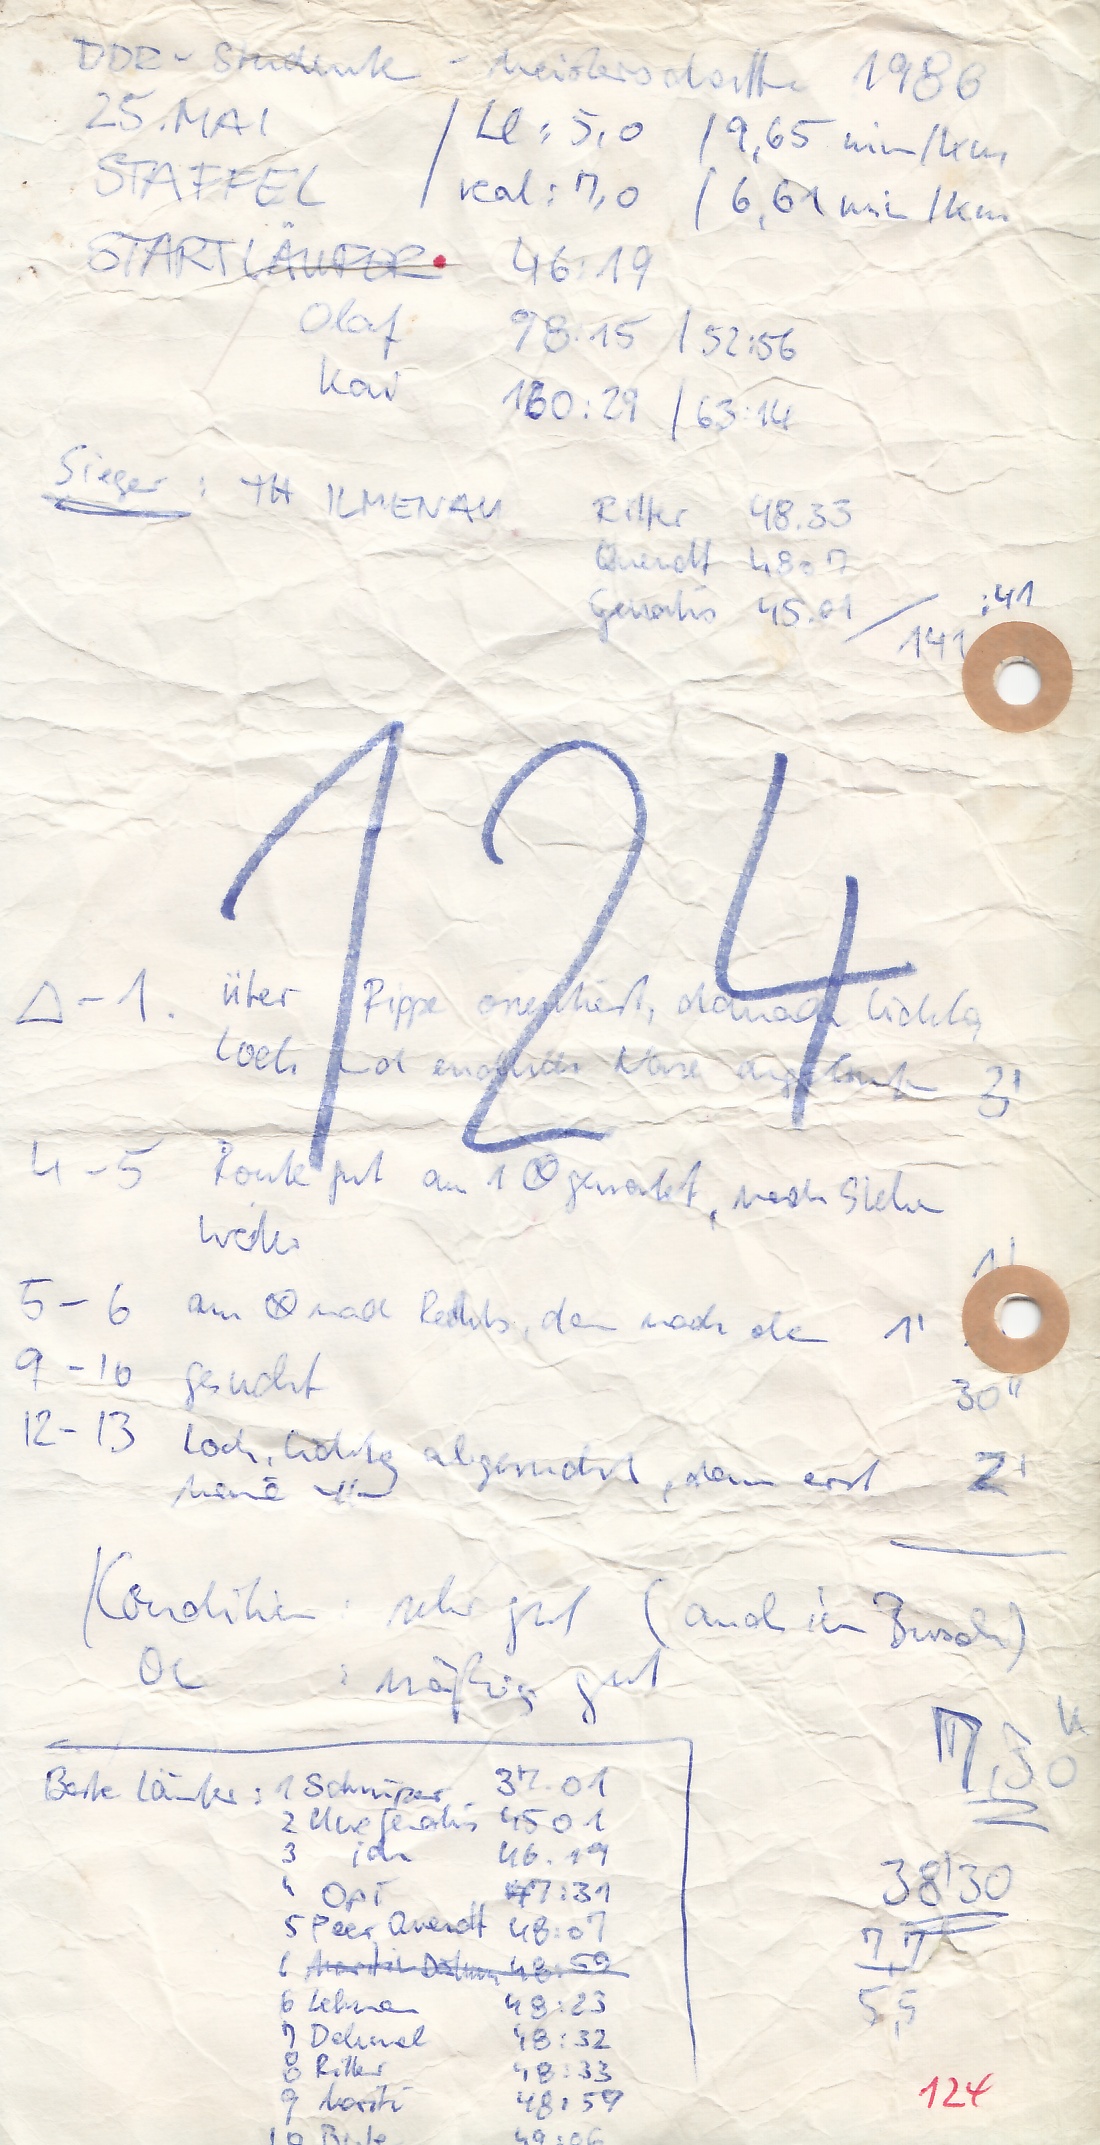 DDR - Studente - meisterschafte 1986
25. MAI / LL : 5,0 / 9,65 min/km
STAFFEL / real : 7,0 / 6,61 min/km
STARTLÄUFER 46:19
Olaf 98:15 / 52:56
Kai 160:29 / 63:14
Sieger : TH ILMENAU Ritter 48.33
Quendt 48:07
Genatis 45.01 / 141 :41
124
△ - 1. über Rippe orientiert, danach lichtg
Loch und endlich Nase angelaufen 3'
4 - 5 Route gut am 1 ⊗ gewartet, nach
weiter 1'
5 - 6 am ⊗ nach Rechts, dann nach 1'
9 - 10 gesucht 30"
12 - 13 Loch, lichtg abgesucht, dann erst 2'
Kondition : sehr gut (auch im Busch)
OL : mäßig gut
7,30
Beste Läufer : 1 Schnüper 37.01
2 Uwe Genatis 45 01
3 ich 46.19
4 Opi 47:31
5 Peer Quendt 48:07
6 Martin 48:59
6 Lehman 48:23
7 Dehmel 48:32
8 Ritter 48:33
9 48:59
10 49:06
38'30
7,7
5,5
124